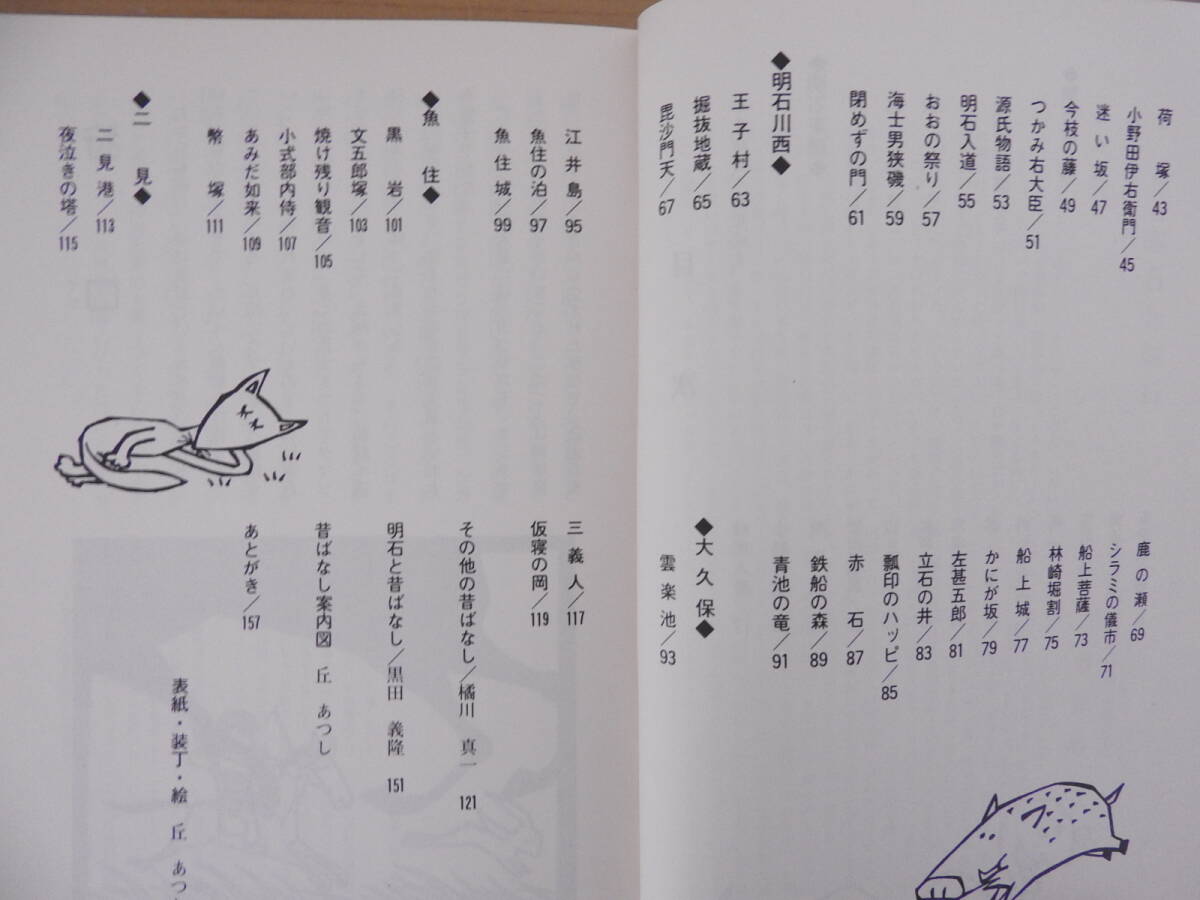 荷塚/43
小野田伊右衛門/45
迷い坂/47
今枝の藤/49
つかみ右大臣/51
源氏物語/53
明石入道/55
おおの祭り/57
海士男狭磯/59
閉めずの門/61
◆明石川西◆
王子村/63
掘抜地蔵/65
毘沙門天/67
鹿の瀬/69
シラミの儀市/71
船上菩薩/73
林崎堀割/75
船上城/77
かにが坂/79
左甚五郎/81
立石の井/83
瓢印のハッピ/85
赤石/87
鉄船の森/89
青池の竜/91
◆大久保◆
雲楽池/93
江井島/95
魚住の泊/97
魚住城/99
◆魚住◆
黒岩/101
文五郎塚/103
焼け残り観音/105
小式部内侍/107
あみだ如来/109
幣塚/111
◆二見◆
二見港/113
夜泣きの塔/115
三義人/117
仮寝の岡/119
その他の昔ばなし/橘川真一 121
明石と昔ばなし/黒田義隆 151
昔ばなし案内図 丘あつし
あとがき/157
表紙・装丁・絵 丘あつ